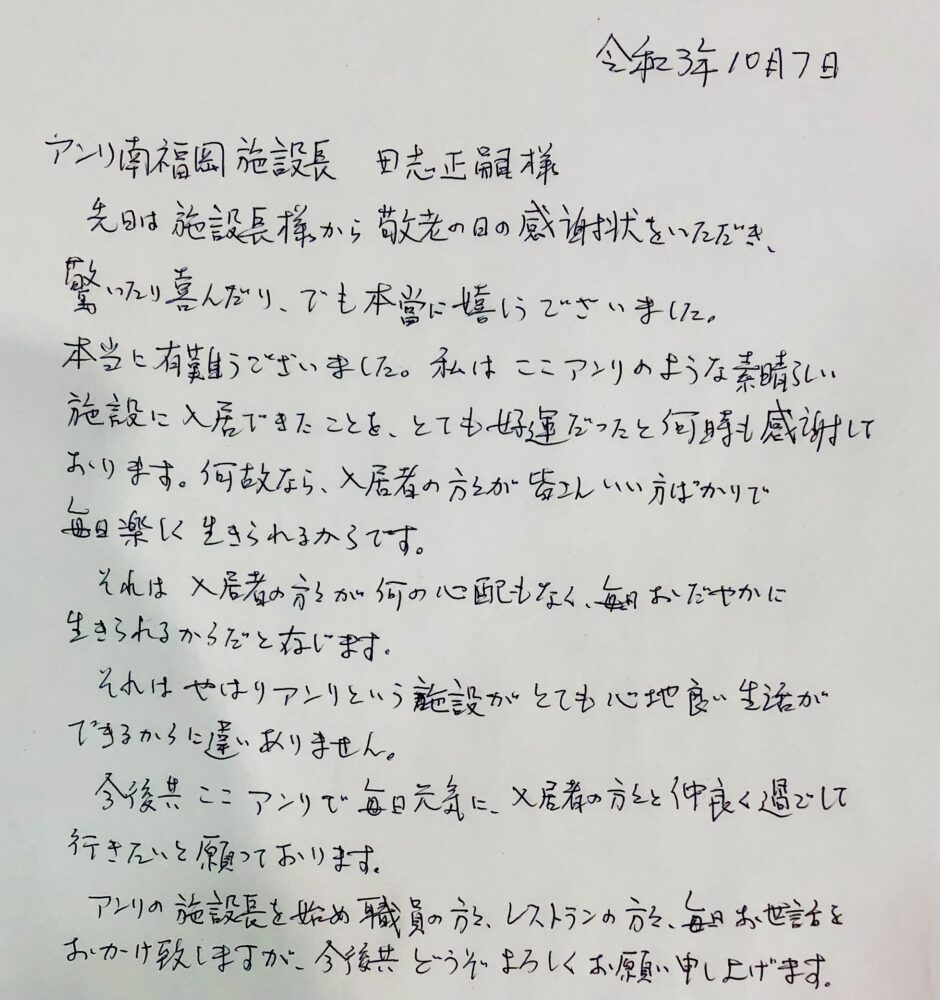 令和3年10月7日
アンリ南福岡施設長 田志正嗣様
先日は施設長様から敬老の日の感謝状をいただき、
驚いたり喜んだり、でも本當に嬉しうございました。
本当に有難うございました。私はここアンリのような素晴らしい
施設に入居できたことを、とても好運だったと何時も感謝して
おります。何故なら、入居者の方々が皆さんいい方ばかりで
毎日楽しく生きられるからです。
それは入居者の方々が何の心配もなく、毎日おだやかに
生きられるからだと存じます。
それはやはりアンリという施設がとても心地良い生活が
できるからに違いありません。
今後共ここアンリで毎日元気に、入居者の方々と仲良く過ごして
行きたいと願っております。
アンリの施設長を始め職員の方々、レストランの方々、毎日お世話を
おかけ致しますが、今後共どうぞよろしくお願い申し上げます。